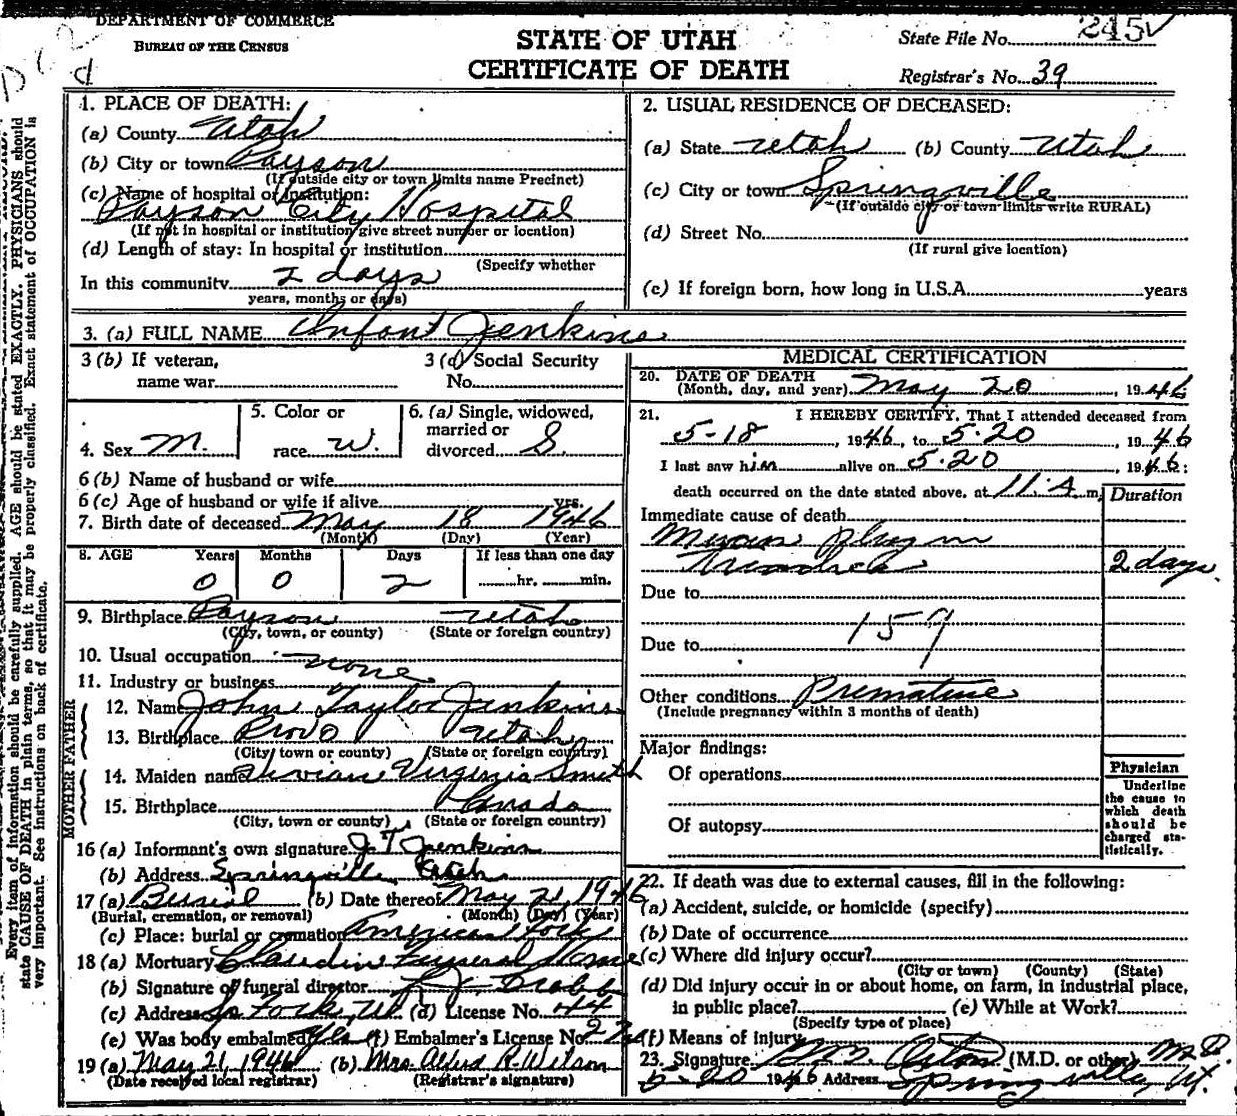 DEPARTMENT OF COMMERCE
BUREAU OF THE CENSUS
STATE OF UTAH
CERTIFICATE OF DEATH
State File No. 245
Registrar's No. 39
Every item of information should be carefully supplied. AGE should be stated EXACTLY. PHYSICIANS should
state CAUSE OF DEATH in plain terms, so that it may be properly classified. Exact statement of OCCUPATION is
very important. See instructions on back of certificate.
1. PLACE OF DEATH:
(a) County Utah
(b) City or town Payson
(If outside city or town limits name Precinct)
(c) Name of hospital or institution:
Payson City Hospital
(If not in hospital or institution give street number or location)
(d) Length of stay: In hospital or institution
(Specify whether
In this community 2 days
years, months or days)
2. USUAL RESIDENCE OF DECEASED:
(a) State Utah (b) County Utah
(c) City or town Springville
(If outside city or town limits write RURAL)
(d) Street No.
(If rural give location)
(e) If foreign born, how long in U.S.A. years
3. (a) FULL NAME Infant Jenkins
3 (b) If veteran,
name war
3 (c) Social Security
No.
4. Sex M.
5. Color or
race W.
6. (a) Single, widowed,
married or
divorced S.
6 (b) Name of husband or wife
6 (c) Age of husband or wife if alive yrs.
7. Birth date of deceased May 18 1946
(Month) (Day) (Year)
8. AGE Years Months Days If less than one day
0 0 2 hr. min.
9. Birthplace Payson Utah
(City, town, or county) (State or foreign country)
10. Usual occupation none
11. Industry or business
FATHER
12. Name John Taylor Jenkins
13. Birthplace Provo Utah
(City, town or county) (State or foreign country)
MOTHER
14. Maiden name Vivian Virginia Smith
15. Birthplace Canada
(City, town or county) (State or foreign country)
16 (a) Informant's own signature J T Jenkins
(b) Address Springville Utah
17 (a) Burial (b) Date thereof May 21, 1946
(Burial, cremation, or removal) (Month) (Day) (Year)
(c) Place: burial or cremation American Fork
18 (a) Mortuary Funeral Home
(b) Signature of funeral director
(c) Address Fork, Ut. (d) License No. 44
(e) Was body embalmed Yes (f) Embalmer's License No.
19 (a) May 21, 1946 (b) Mrs. Alfred R. Wilson
(Date received local registrar) (Registrar's signature)
MEDICAL CERTIFICATION
20. DATE OF DEATH
(Month, day, and year) May 20, 1946
21. I HEREBY CERTIFY, That I attended deceased from
5-18, 1946, to 5-20, 1946
I last saw him alive on 5-20, 1946;
death occurred on the date stated above, at 11:A m.
Duration
Immediate cause of death
2 days
Due to
159
Due to
Other conditions Premature
(Include pregnancy within 3 months of death)
Major findings:
Of operations
Of autopsy
Physician
Underline
the cause to
which death
should be
charged sta-
tistically.
22. If death was due to external causes, fill in the following:
(a) Accident, suicide, or homicide (specify)
(b) Date of occurrence
(c) Where did injury occur?
(City or town) (County) (State)
(d) Did injury occur in or about home, on farm, in industrial place,
in public place? (e) While at Work?
(Specify type of place)
(f) Means of injury
23. Signature (M.D. or other) M.D.
5-20 1946 Address Springville, Ut.